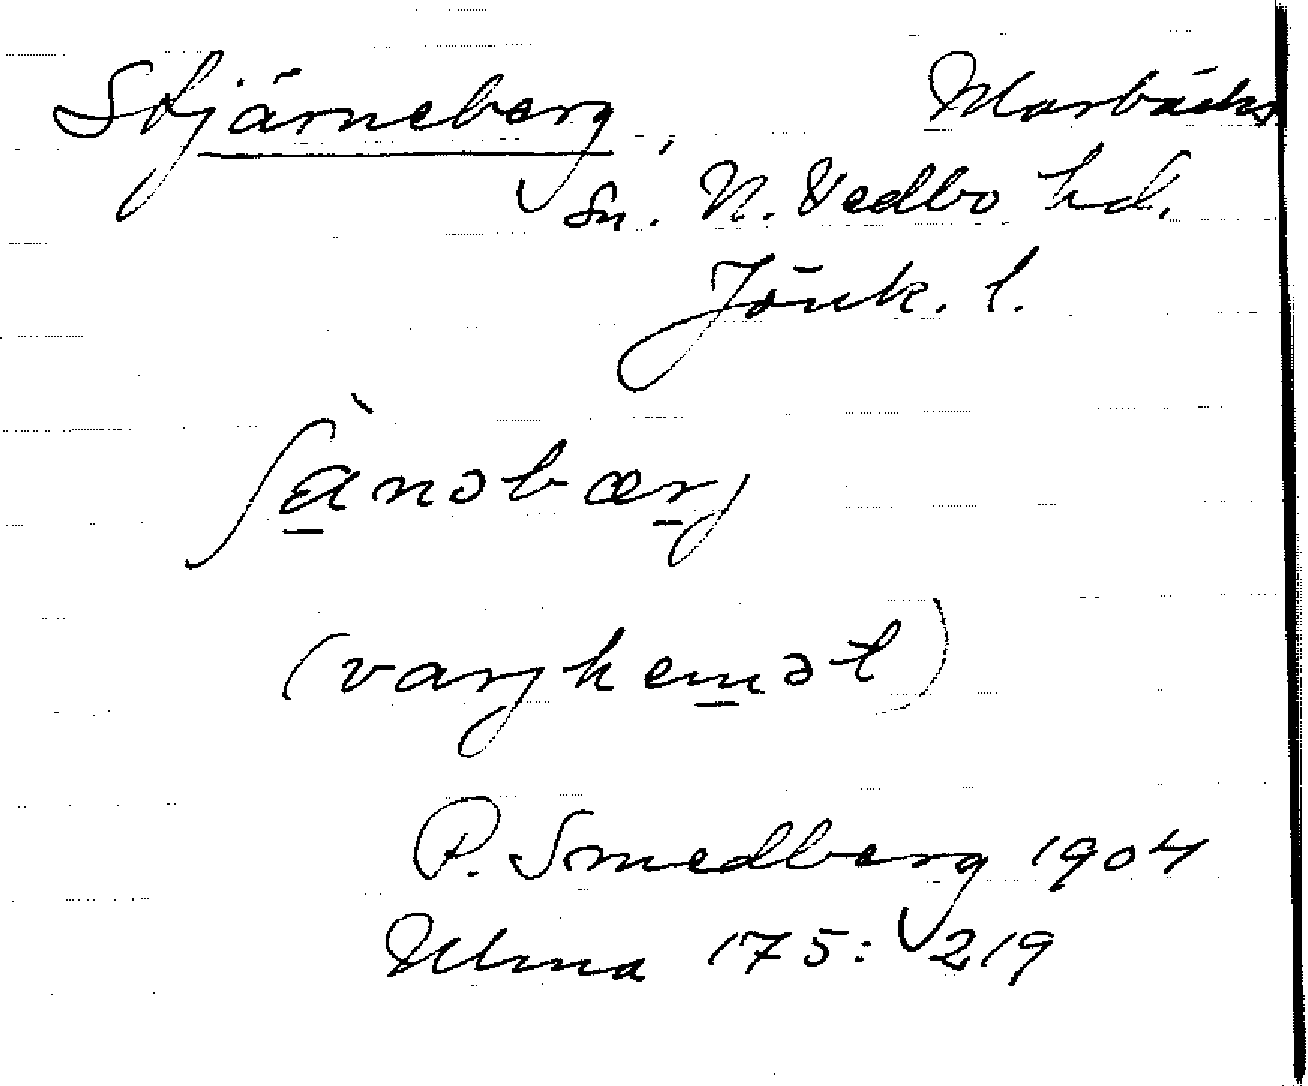 Stjärneberg, Marbäcks
sn. N. Vedbo hd.
Jönk. l.
ʃà̱nəbær̠j
(varjhem̠ət)
P. Smedberg 1904
Ulma 175: 219